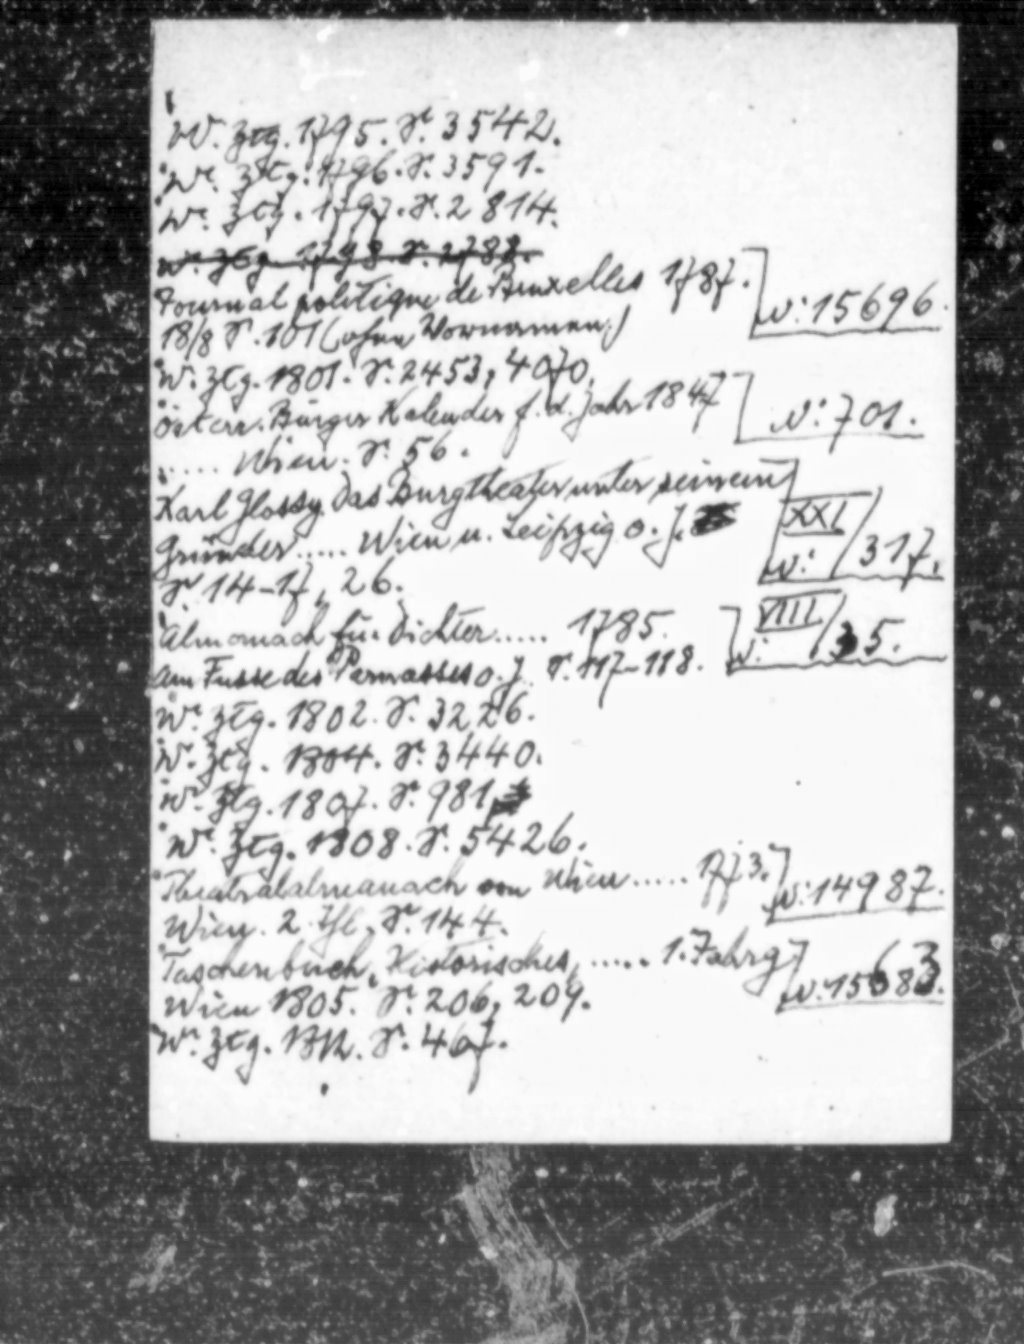 W. Ztg. 1795. S. 3542.
W. Ztg. 1796. S. 3591.
W. Ztg. 1797. S. 2814.
W. Ztg. 1798 S. 2788.
Journal politique de Bruxelles 1787.
18/8 S. 101 (ohne Vornamen.) N: 15696.
W. Ztg. 1801. S. 2453, 4070.
Österr. Bürger Kalender f. d. Jahr 1847
..... Wien. S. 56. N: 701.
Karl Glossy, Das Burgtheater unter seinem
Gründer ..... Wien u. Leipzig o. J. XXI
S. 14-17, 26. N: / 317.
Almanach für Dichter ..... 1785. VIII
am Fusse des Parnasses o. J. S. 117-118. N: / 35.
W. Ztg. 1802. S. 3226.
W. Ztg. 1804. S. 3440.
W. Ztg. 1807. S. 981
W. Ztg. 1808. S. 5426.
Theatralalmanach von Wien ..... 1773.
Wien. 2. Thl. S. 144. N: 14987.
Taschenbuch, Historisches, ..... 1. Jahrg
Wien 1805. S. 206, 209.
W. Ztg. 1812. S. 467.